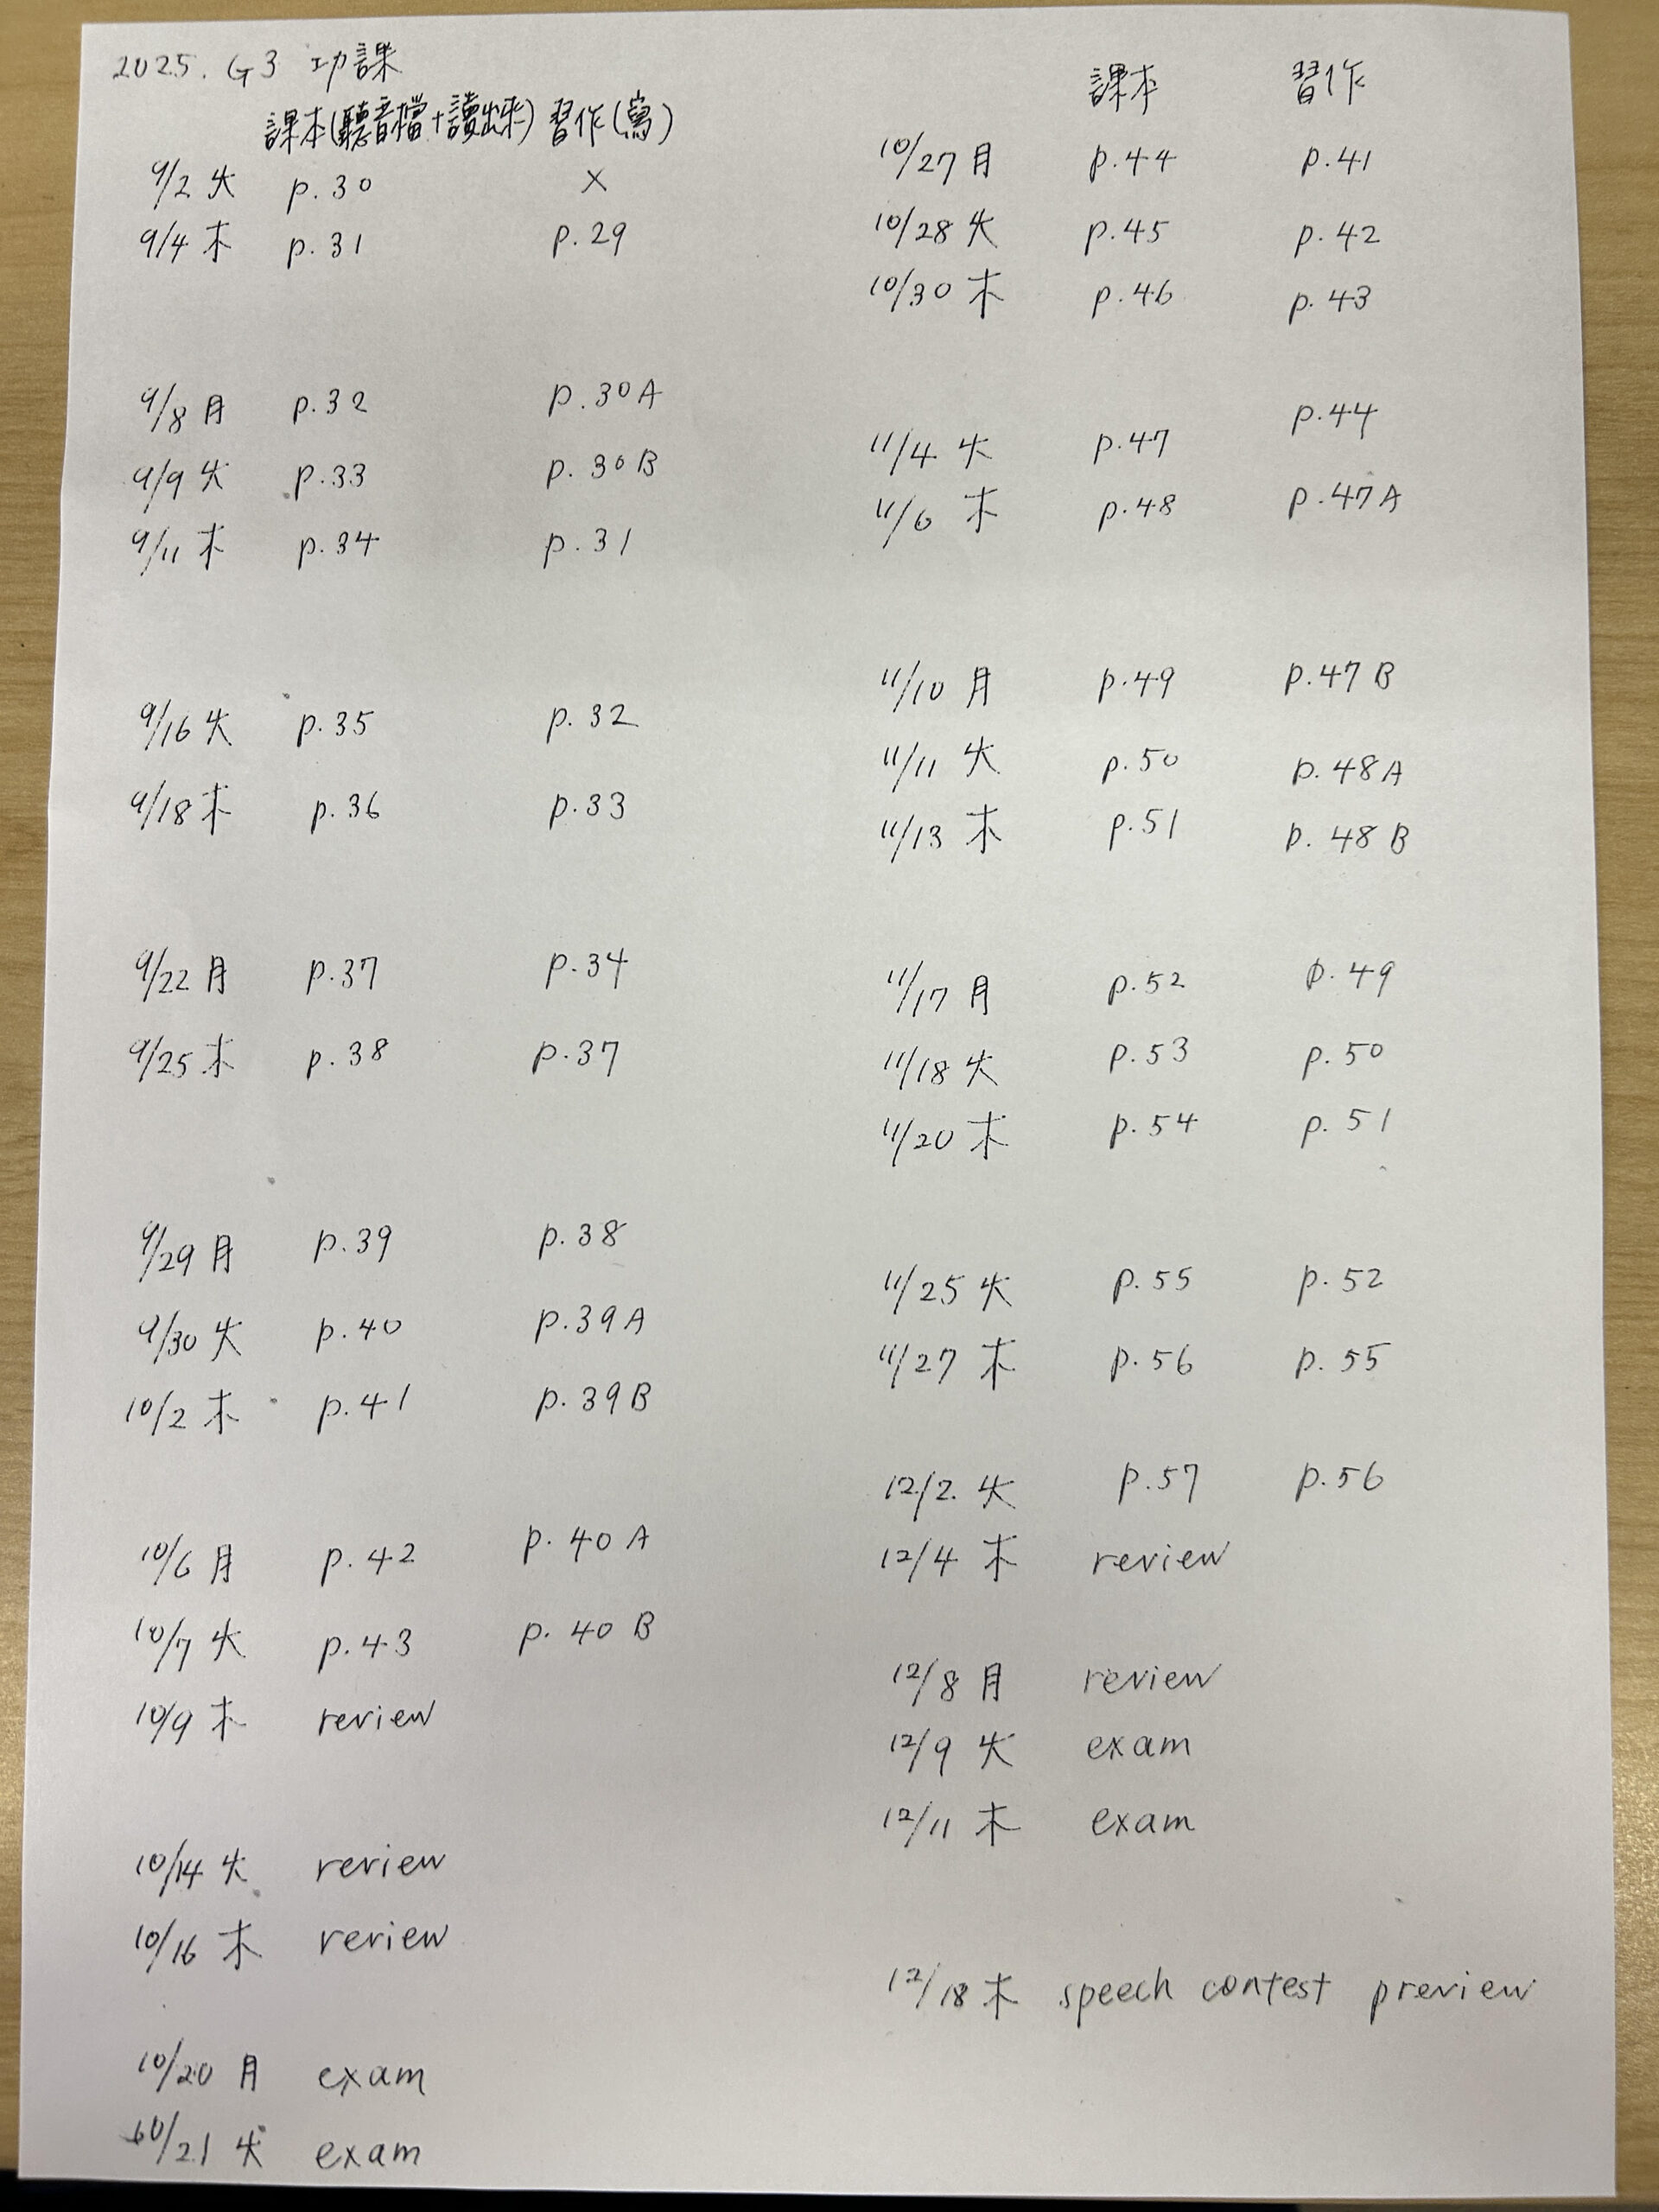 2025. G3 功課
課本(聽音檔+讀出來) 習作(寫)
9/2 火 p.30 ×
9/4 木 p.31 p.29
9/8 月 p.32 p.30A
9/9 火 p.33 p.30B
9/11 木 p.34 p.31
9/16 火 p.35 p.32
9/18 木 p.36 p.33
9/22 月 p.37 p.34
9/25 木 p.38 p.37
9/29 月 p.39 p.38
9/30 火 p.40 p.39A
10/2 木 p.41 p.39B
10/6 月 p.42 p.40A
10/7 火 p.43 p.40B
10/9 木 review
10/14 火 review
10/16 木 review
10/20 月 exam
10/21 火 exam
課本 習作
10/27 月 p.44 p.41
10/28 火 p.45 p.42
10/30 木 p.46 p.43
11/4 火 p.47 p.44
11/6 木 p.48 p.47A
11/10 月 p.49 p.47B
11/11 火 p.50 p.48A
11/13 木 p.51 p.48B
11/17 月 p.52 p.49
11/18 火 p.53 p.50
11/20 木 p.54 p.51
11/25 火 p.55 p.52
11/27 木 p.56 p.55
12/2 火 p.57 p.56
12/4 木 review
12/8 月 review
12/9 火 exam
12/11 木 exam
12/18 木 speech contest preview